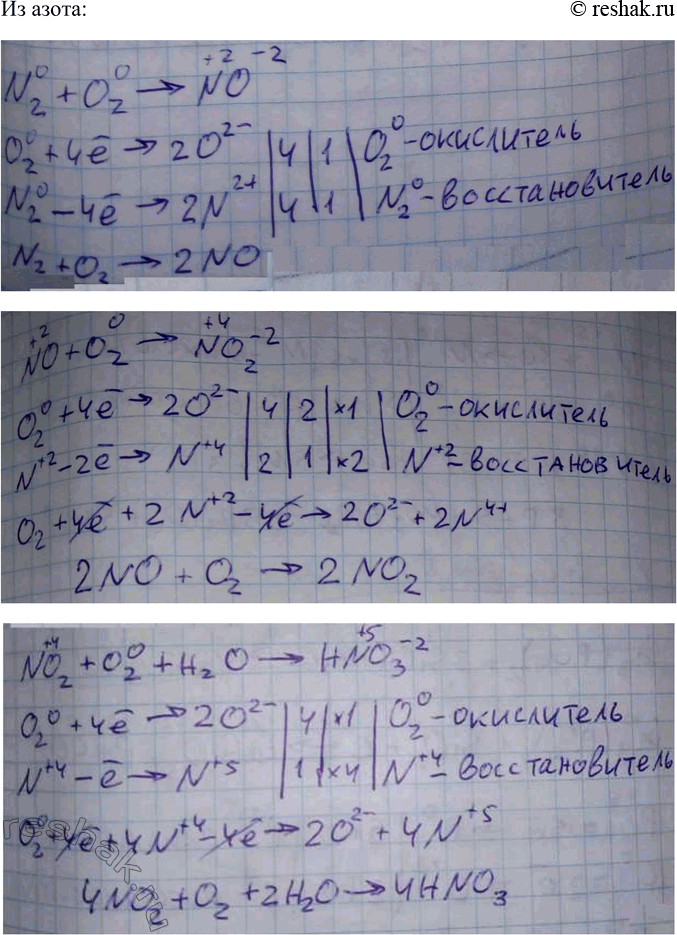 Из азота:
© reshak.ru
N₂⁰ + O₂⁰ → N⁺²O⁻²
O₂⁰ + 4ē → 2O²⁻ | 4 | 1 | O₂⁰ - окислитель
N₂⁰ - 4ē → 2N²⁺ | 4 | 1 | N₂⁰ - восстановитель
N₂ + O₂ → 2NO
N⁺²O + O₂⁰ → N⁺⁴O₂⁻²
O₂⁰ + 4ē → 2O²⁻ | 4 | 2 | ×1 | O₂⁰ - окислитель
N⁺² - 2ē → N⁺⁴ | 2 | 1 | ×2 | N⁺² - восстановитель
O₂ + 4ē + 2N⁺² - 4ē → 2O²⁻ + 2N⁴⁺
2NO + O₂ → 2NO₂
N⁺⁴O₂ + O₂⁰ + H₂O → HN⁺⁵O₃⁻²
O₂⁰ + 4ē → 2O²⁻ | 4 | ×1 | O₂⁰ - окислитель
N⁺⁴ - ē → N⁺⁵ | 1 | ×4 | N⁺⁴ - восстановитель
O₂⁰ + 4ē + 4N⁺⁴ - 4ē → 2O²⁻ + 4N⁺⁵
4NO₂ + O₂ + 2H₂O → 4HNO₃
reshak.ru